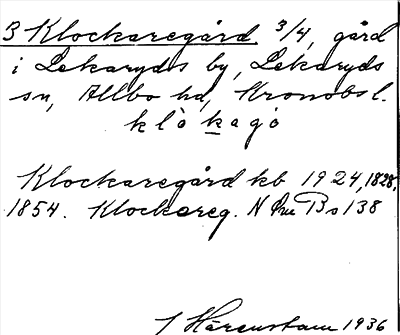 3 Klockaregård 3/4, gård
i Lekaryds by, Lekaryds
sn, Allbo hd, Kronobs l.
klòkagò
Klockaregård kb 1924, 1828,
1854. Klockareg. N Bs 138
Härenstam 1936